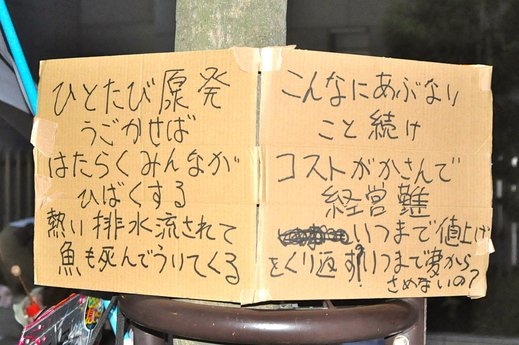 ひとたび原発
うごかせば
はたらくみんなが
ひばくする
熱い排水流されて
魚も死んでういてくる
こんなにあぶない
こと続け
コストがかさんで
経営難
いつまで値上げ
をくり返す!いつまで夢から
さめないの?